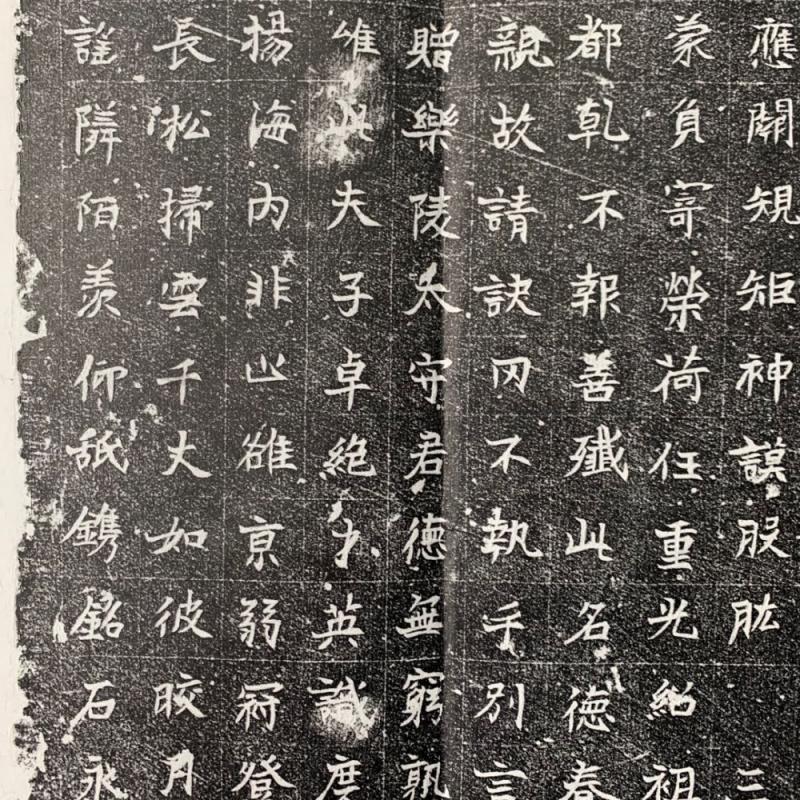 應闡規矩神謨股肱三
蒙負寄榮荷任重光紹祖
都乾不報善殲此名德春
親故請訣罔不執手別言
贈樂陵太守君德無窮孰
唯夫子卓絶才英識度
揚海內非止雄京弱冠登
長松掃雲千丈如彼皎月
謠隣陌羨仰舐鐫銘石永